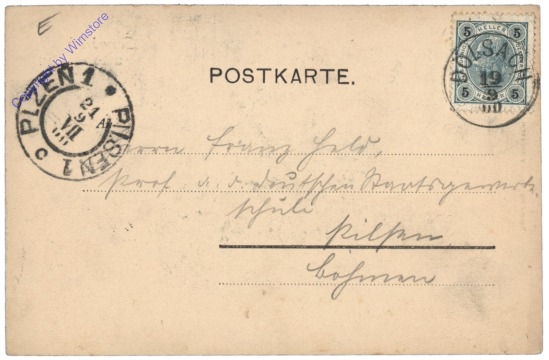 E
by Wimstore
POSTKARTE.
5 HELLER 5
DÖLSACH
19
9
00
5 HELLER 5
PLZEŇ 1
21 A
9
VII
PILSEN 1
Herrn Franz Held,
Prof. a. d. deutschen Staatsgewerbe
schule
Pilsen
Böhmen